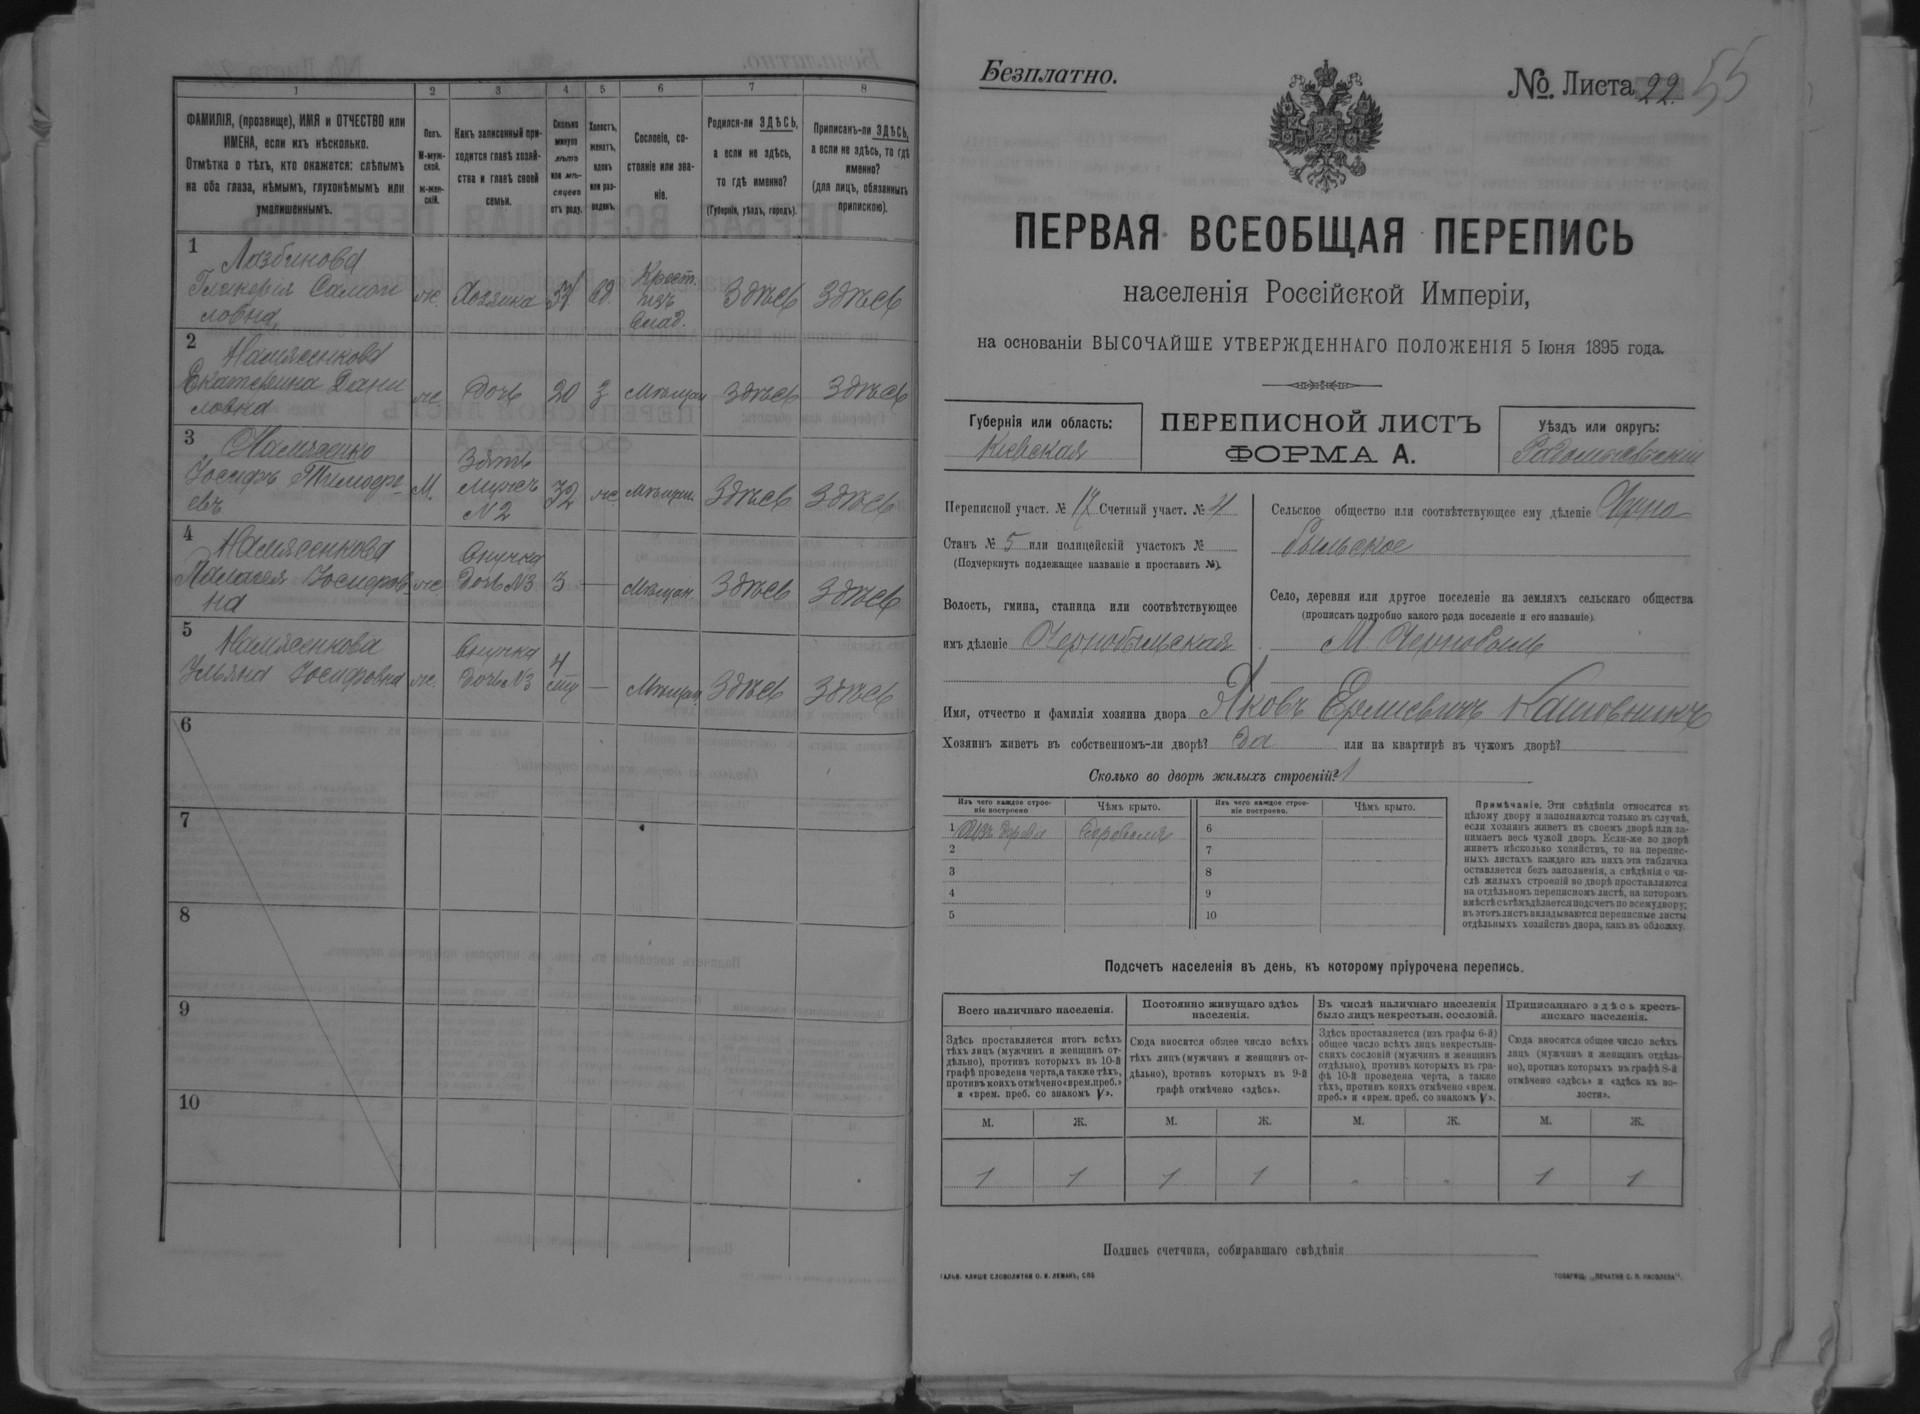 1 2 3 4 5 6 7 8
ФАМИЛІЯ, (прозвище), ИМЯ и ОТЧЕСТВО или
ИМЕНА, если ихъ нѣсколько.
Отмѣтка о тѣхъ, кто окажется: слѣпымъ
на оба глаза, нѣмымъ, глухонѣмымъ или
умалишеннымъ.
Полъ.
М-муж-
ской.
ж-жен-
скій.
Какъ записанный при-
ходится главѣ хозяй-
ства и главѣ своей
семьи.
Сколько
минуло
лѣтъ
или мѣ-
сяцевъ
отъ роду.
Холостъ,
женатъ,
вдовъ
или раз-
веденъ.
Сословіе, со-
стояніе или зва-
ніе.
Родился-ли ЗДѢСЬ,
а если не здѣсь,
то гдѣ именно?
(Губернія, уѣздъ, городъ).
Приписанъ-ли ЗДѢСЬ,
а если не здѣсь, то гдѣ
именно?
(для лицъ, обязанныхъ
припискою).
1
Гликерія Самой
ловна
ж. Хозяика вд. Крест. изъ Здѣсь Здѣсь
2
Екатерина Дани
ловна
ж. Дочь 20 З Мѣщан Здѣсь Здѣсь
3
Іосифъ Тимофе-
евъ
М. Зять мужъ N2 32 ж. Мѣщан. Здѣсь Здѣсь
4
Іосифов
на
ж. Внучка Дочь N3 3 — Мѣщан. Здѣсь Здѣсь
5
Ульяна Іосифовна
ж. Внучка Дочь N3 4 — Мѣщан. Здѣсь Здѣсь
6
7
8
9
10
Безплатно.
№. Листа 22. 55
ПЕРВАЯ ВСЕОБЩАЯ ПЕРЕПИСЬ
населенія Россійской Имперіи,
на основаніи ВЫСОЧАЙШЕ УТВЕРЖДЕННАГО ПОЛОЖЕНІЯ 5 Іюня 1895 года.
Губернія или область:
Кіевская
ПЕРЕПИСНОЙ ЛИСТЪ
ФОРМА А.
Уѣздъ или округъ:
Радомысльскій
Переписной участ. № 17 Счетный участ. № 4
Станъ № 5 или полицейскій участокъ №
(Подчеркнуть подлежащее названіе и проставить №).
Волость, гмина, станица или соотвѣтствующее
имъ дѣленіе Чернобыльская
Сельское общество или соотвѣтствующее ему дѣленіе Черно
быльское
Село, деревня или другое поселеніе на земляхъ сельскаго общества
(прописать подробно какого рода поселеніе и его названіе).
М. Чернобыль
Имя, отчество и фамилія хозяина двора Яковъ
Хозяинъ живетъ въ собственномъ-ли дворѣ? да или на квартирѣ въ чужомъ дворѣ?
Сколько во дворѣ жилыхъ строеній? 1
Изъ чего каждое строе-
ніе построено
Чѣмъ крыто.
Изъ чего каждое строе-
ніе построено.
Чѣмъ крыто.
1 Изъ дерева 6
2 7
3 8
4 9
5 10
Примѣчаніе. Эти свѣдѣнія относятся къ
цѣлому двору и заполняются только въ случаѣ,
если хозяинъ живетъ въ своемъ дворѣ или за-
нимаетъ весь чужой дворъ. Если-же во дворѣ
живетъ нѣсколько хозяйствъ, то на перепис-
ныхъ листахъ каждаго изъ нихъ эта табличка
оставляется безъ заполненія, а свѣдѣнія о чи-
слѣ жилыхъ строеній во дворѣ проставляются
на отдѣльномъ переписномъ листѣ, на которомъ
вмѣстѣ съ тѣмъ дѣлается подсчетъ по всему двору;
въ этотъ листъ вкладываются переписные листы
отдѣльныхъ хозяйствъ двора, какъ въ обложку.
Подсчетъ населенія въ день, къ которому пріурочена перепись.
Всего наличнаго населенія.
Постоянно живущаго здѣсь
населенія.
Въ числѣ наличнаго населенія
было лицъ некрестьян. сословій.
Приписаннаго здѣсь кресть-
янскаго населенія.
Здѣсь проставляется итогъ всѣхъ
тѣхъ лицъ (мужчинъ и женщинъ от-
дѣльно), противъ которыхъ въ 10-й
графѣ проведена черта, а также тѣхъ,
противъ коихъ отмѣчено «врем. преб.»
и «врем. преб. со знакомъ V».
Сюда вносится общее число всѣхъ
тѣхъ лицъ (мужчинъ и женщинъ от-
дѣльно), противъ которыхъ въ 9-й
графѣ отмѣчено «здѣсь».
Здѣсь проставляется (изъ графы 6-й)
общее число всѣхъ лицъ некрестьян-
скихъ сословій (мужчинъ и женщинъ
отдѣльно), противъ которыхъ въ гра-
фѣ 10-й проведена черта, а также
тѣхъ, противъ коихъ отмѣчено «врем.
преб.» и «врем. преб. со знакомъ V».
Сюда вносится общее число всѣхъ
лицъ (мужчинъ и женщинъ отдѣль-
но), противъ которыхъ въ графѣ 8-й
отмѣчено «здѣсь» и «здѣсь въ во-
лости».
М. Ж. М. Ж. М. Ж. М. Ж.
1 1 1 1 - - 1 1
Подпись счетчика, собиравшаго свѣдѣнія
ГАЛЬВ. КЛИШЕ СЛОВОЛИТНИ О. И. ЛЕМАНЪ, СПБ
ТОВАРИЩ. „ПЕЧАТНЯ С. П. ЯКОВЛЕВА".